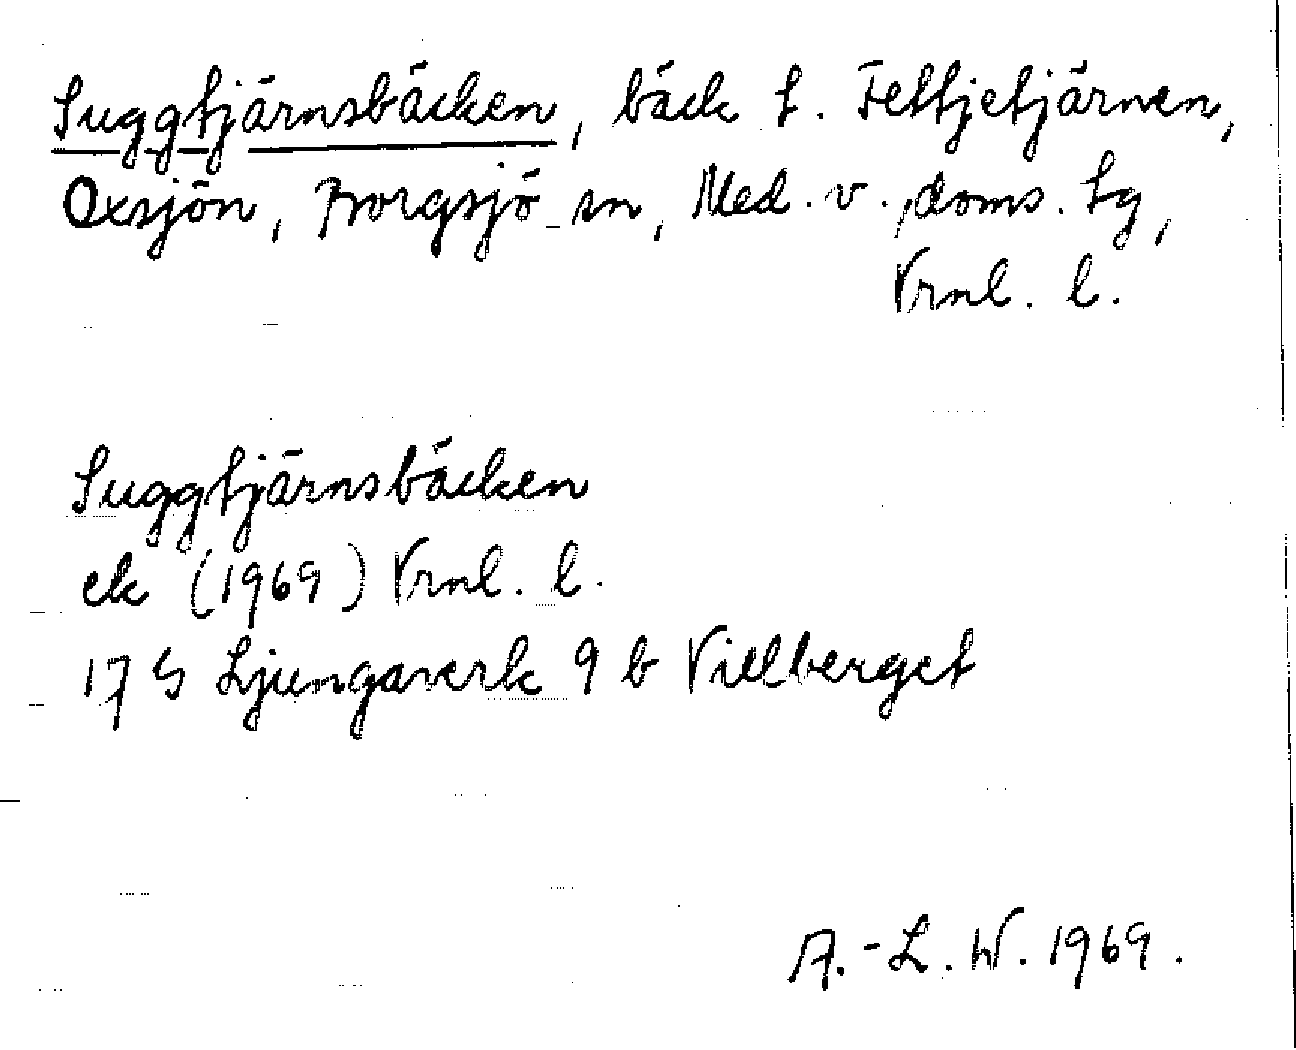 Suggtjärnsbäcken, bäck t. Tettjetjärnen,
Oxsjön, Borgsjö sn, Med. v., doms. tg,
Vrnl. l.
Suggtjärnsbäcken
ek (1969) Vrnl. l.
17 G Ljungaverk 9 b Villberget
A.-L. W. 1969.